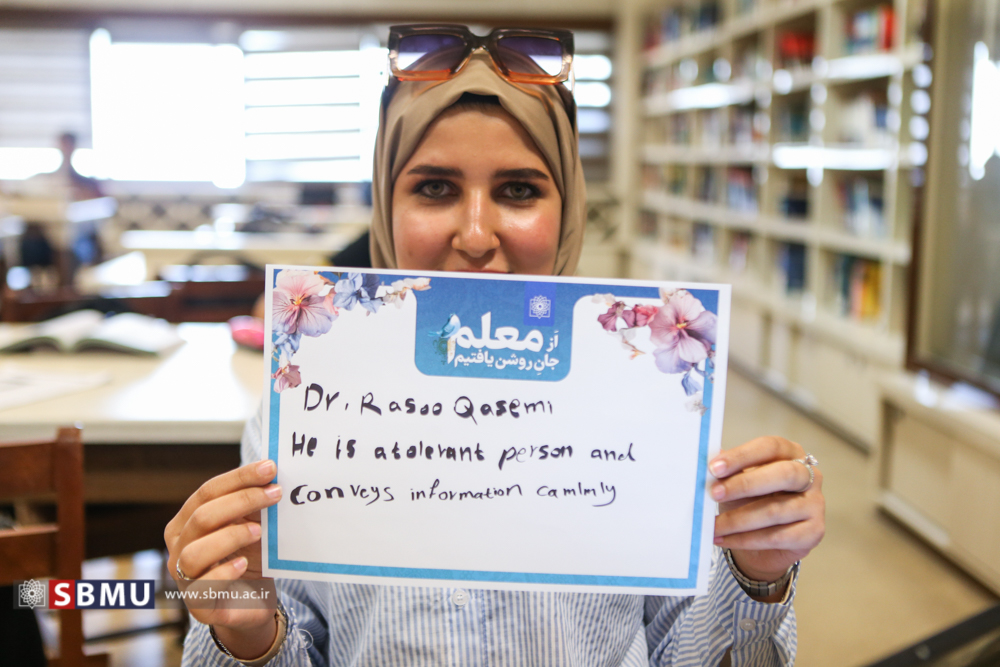 از معلم
جانِ روشن یافتیم
Dr. Rasoo Qasemi
He is a tolerant person and
conveys information camlmly
SBMU
www.sbmu.ac.ir